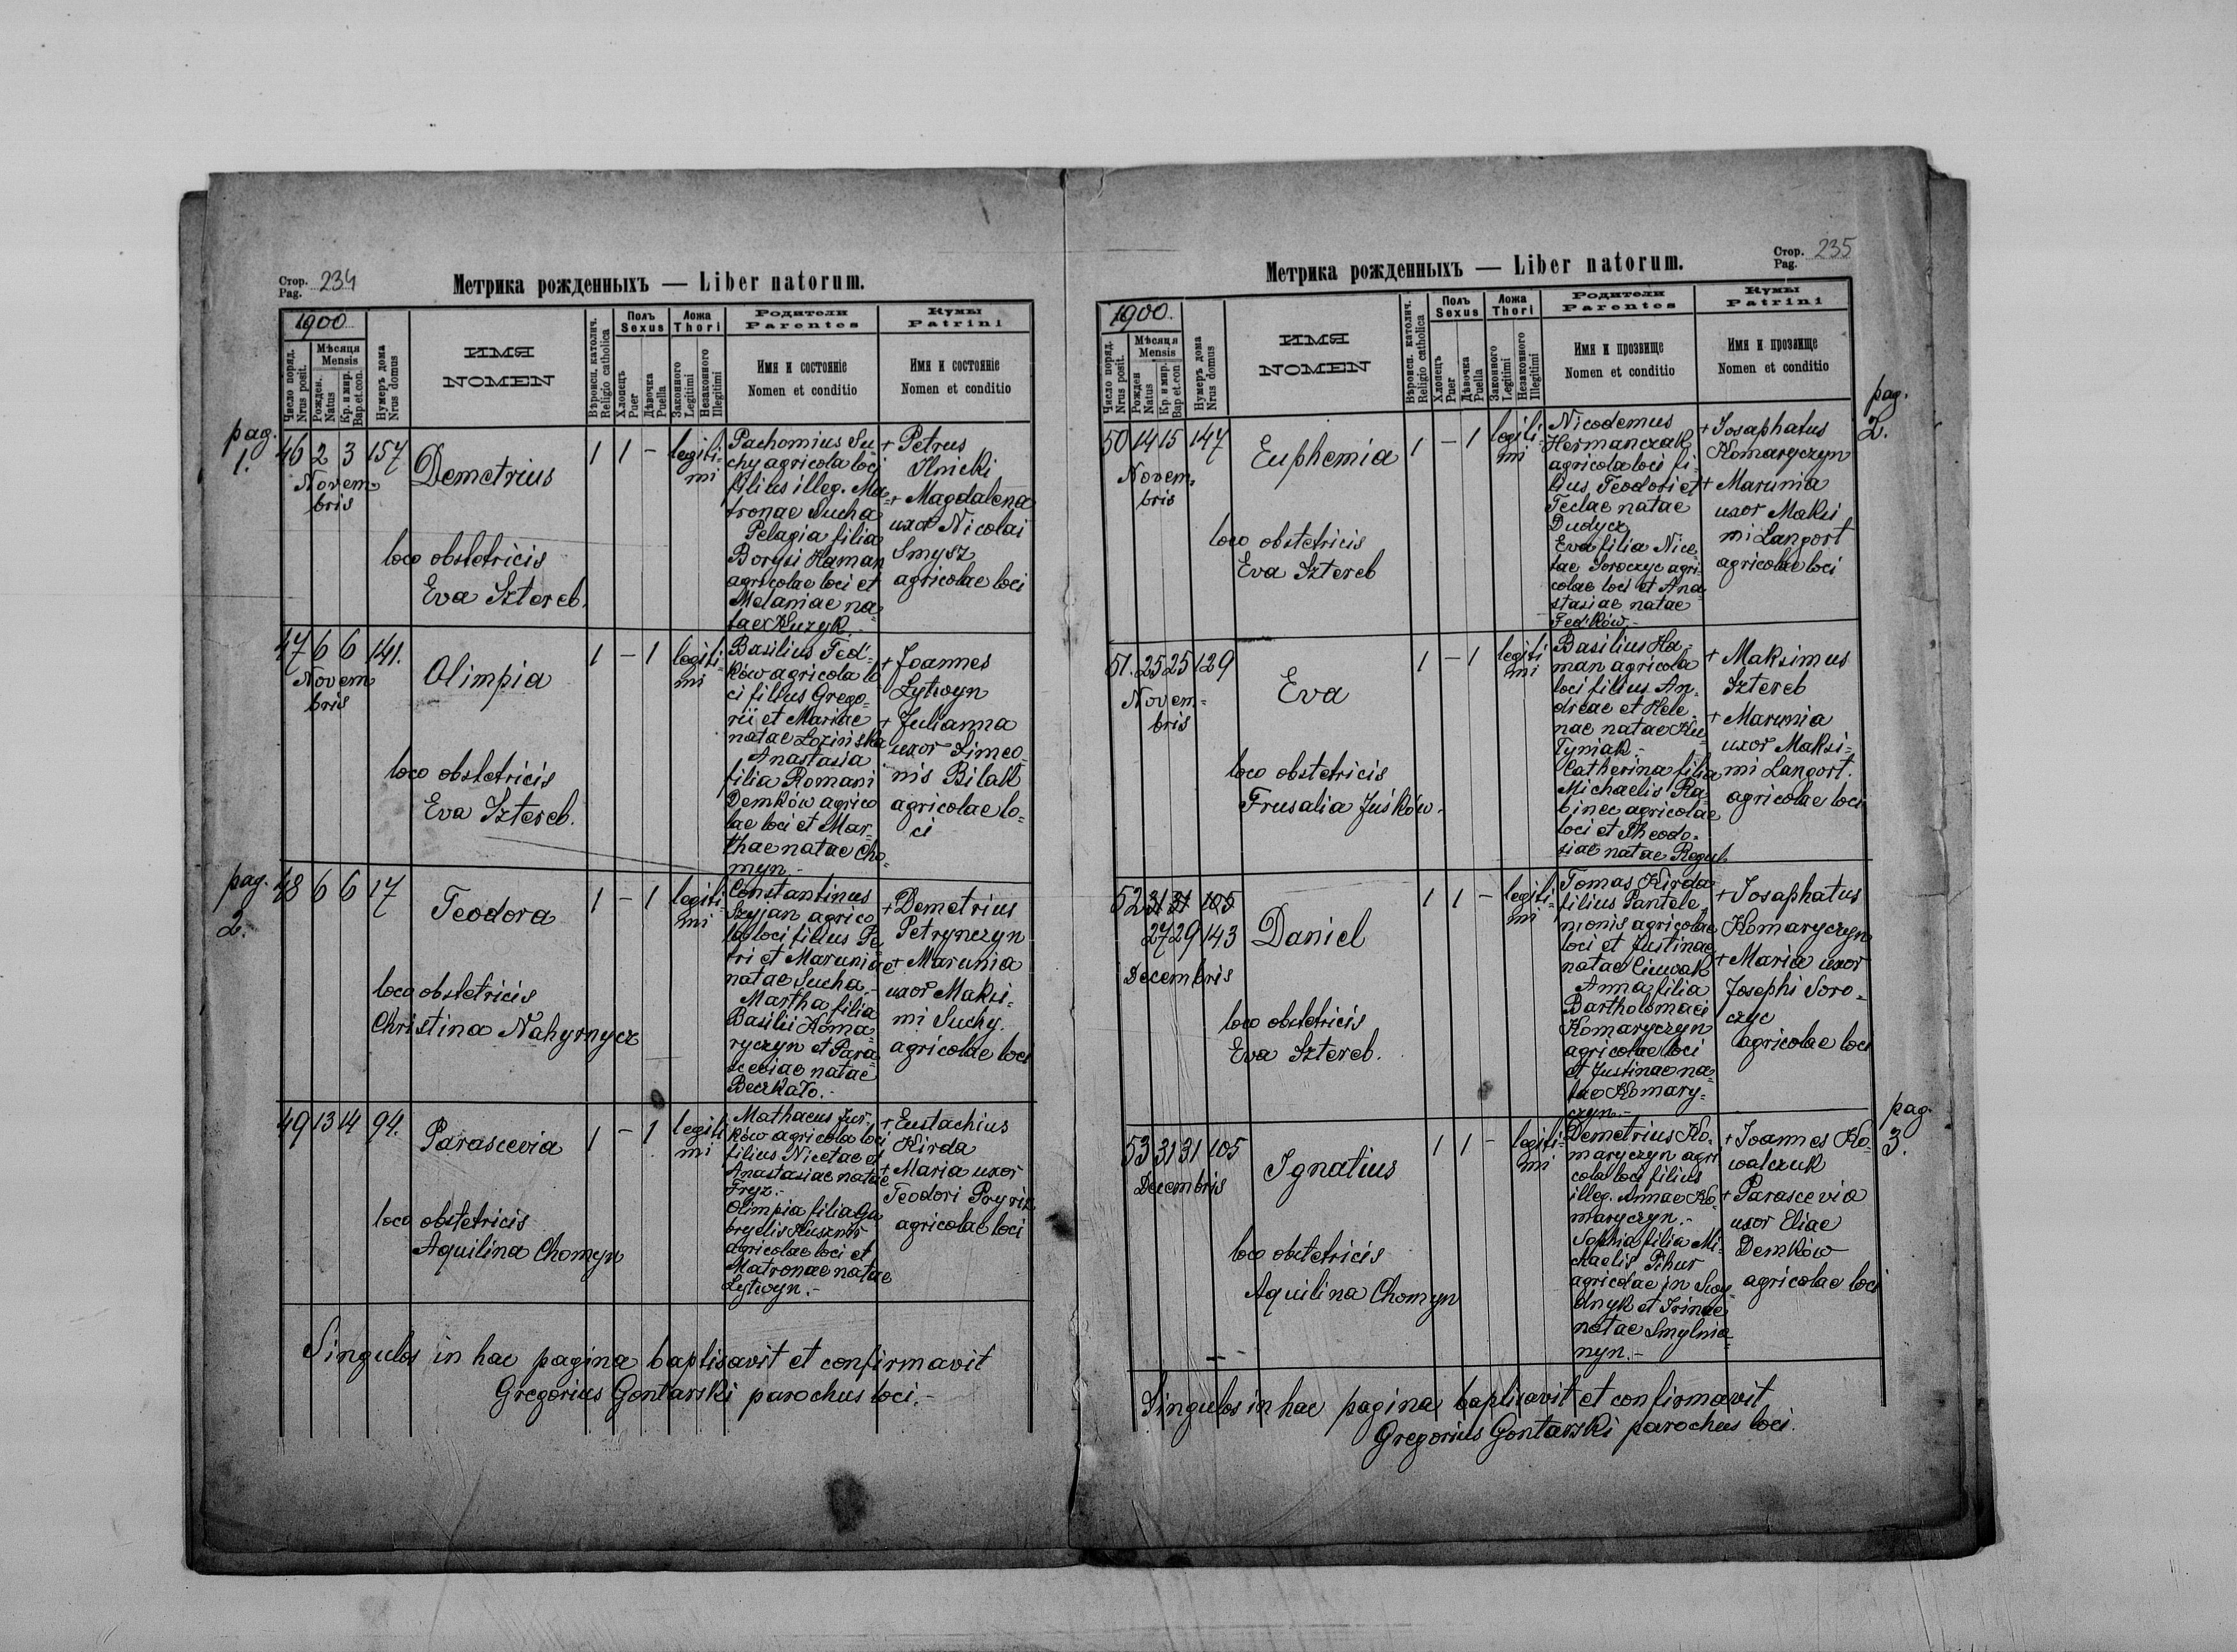 Стор. 234
Pag.
Метрика рожденныхъ — Liber natorum.
1900
Число поряд.
Nrus posit.
Мѣсяця
Mensis
Рожден.
Natus
Кр. и мир.
Bap. et. con.
Нумеръ дома
Nrus domus
ИМЯ
NOMEN
Вѣроисп. католич.
Religio catholica
Полъ
Sexus
Хлопецъ
Puer
Дѣвочка
Puella
Ложа
Thori
Законного
Legitimi
Незаконного
Illegitimi
Родители
Parentes
Имя и состояніе
Nomen et conditio
Кумы
Patrini
Имя и состояніе
Nomen et conditio
pag.
1.
46 2 3 157
Novem-
bris
Demetrius
loco obstetricis
Eva Sztereb.
1 1 -
legiti-
mi
Pachomius Su-
chy agricola loci
filius illeg. Ma-
tronae Sucha
Pelagia filia
Borysi Haman
agricolae loci et
Melaniae na-
tae Kuzyk.-
+ Petrus
Ilnicki
+ Magdalena
uxor Nicolai
Smysz
agricolae loci
47 6 6 141.
Novem
bris
Olimpia
loco obstetricis
Eva Sztereb.
1 - 1
legiti-
mi
Basilius Fed-
ków agricola lo
ci filius Grego-
rii et Mariae
natae Łozińska
Anastasia
filia Romani
Demków agrico
lae loci et Mar-
thae natae Cho-
myn.-
+ Joannes
Lytwyn
+ Julianna
uxor Simeo-
nis Bilak
agricolae lo-
ci
pag.
2.
48 6 6 17
Teodora
loco obstetricis
Christina Nahyrnycz
1 - 1
legiti-
mi
Constantinus
Szyjan agrico
la loci filius Pe
tri et Maruniae
natae Sucha.-
Martha filia
Basilii Koma-
ryczyn et Para-
sceviae natae
Beczkało.-
+ Demetrius
Petrynczyn
+ Marunia
uxor Maksi-
mi Suchy.
agricolae loci
49 13 14 94.
Parascevia
loco obstetricis
Aquilina Chomyn
1 - 1
legiti
mi
Mathaeus Jur-
ków agricola loci
filius Nicetae et
Anastasiae natae
Fryz.-
Olimpia filia Ga
bryelis Kusznir
agricolae loci et
Matronae natae
Lytwyn.-
+ Eustachius
Kirda
+ Maria uxor
Teodori
agricolae loci
Singulos in hac pagina baptisavit et confirmavit
Gregorius Gontarski parochus loci.-
Стор. 235
Pag.
Метрика рожденныхъ — Liber natorum.
1900.
Число поряд.
Nrus posit.
Мѣсяця
Mensis
Рожден
Natus
Кр. и мир.
Bap et.con
Нумеръ дома
Nrus domus
ИМЯ
NOMEN
Вѣроисп. католич.
Religio catholica
Полъ
Sexus
Хлопецъ
Puer
Дѣвочка
Puella
Ложа
Thori
Законного
Legitimi
Незаконного
Illegitimi
Родители
Parentes
Имя и прозвище
Nomen et conditio
Кумы
Patrini
Имя и прозвище
Nomen et conditio
pag.
2.
50 14 15 147
Novem-
bris
Euphemia
loco obstetricis
Eva Sztereb
1 - 1
legiti-
mi
Nicodemus
Hermanczak
agricola loci fi-
lius Teodori et
Teclae natae
Dudycz
Eva filia Nice-
tae Soroczyc agri-
colae loci et Ana-
stasiae natae
Fedków.-
+ Josaphatus
Komaryczyn
+ Marunia
uxor Maksi
mi Langort
agricolae loci
51. 25 25 129
Novem-
bris
Eva
loco obstetricis
Frusalia Juśków.
1 - 1
legiti
mi
Basilius Ha-
man agricola
loci filius An-
dreae et Hele-
nae natae Ku-
tyniak.-
Catherina filia
Michaelis Ra-
binec agricolae
loci et Theodo-
siae natae Regul
+ Maksimus
Sztereb
+ Marunia
uxor Maksi-
mi Langort.
agricolae loci
52 31 31 105
27 29 143
Decembris
Daniel
loco obstetricis
Eva Sztereb.
1 1 -
legiti-
mi
Tomas Kirda
filius Pantele
monis agricolae
loci et Justinae
natae Ciuwak
Anna filia
Bartholomaei
Komaryczyn
agricolae loci
et Justinae na-
tae Komary-
czyn.-
+ Josaphatus
Komaryczyn
+ Maria uxor
Josephi Soro-
czyc
agricolae loci
pag.
3.
53 31 31 105
Decembris
Ignatius
loco obstetricis
Aquilina Chomyn
1 1 -
legiti-
mi
Demetrius Ko-
maryczyn agri
cola loci filius
illeg. Annae Ko
maryczyn.-
Sophia filia Mi-
chaelis Pihur
agricolae in
et Irinae
natae Smylnia-
nyn.-
+ Joannes Ko-
walczuk
+ Parascevia
uxor Eliae
Demków
agricolae loci
Singulos in hac pagina baptisavit et confirmavit
Gregorius Gontarski parochus loci.